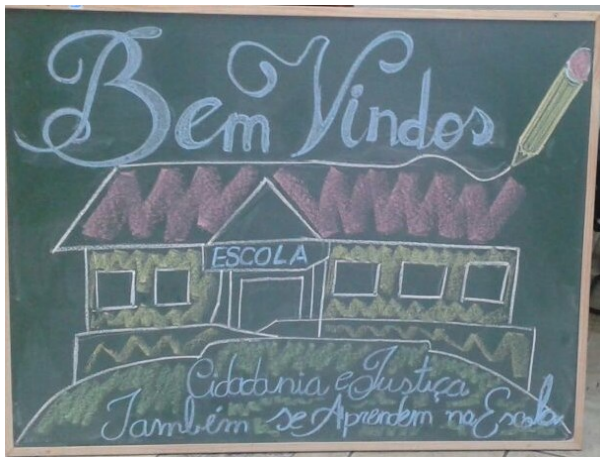 Bem Vindos
ESCOLA
Cidadania e Justiça
Também se Aprendem na Escola